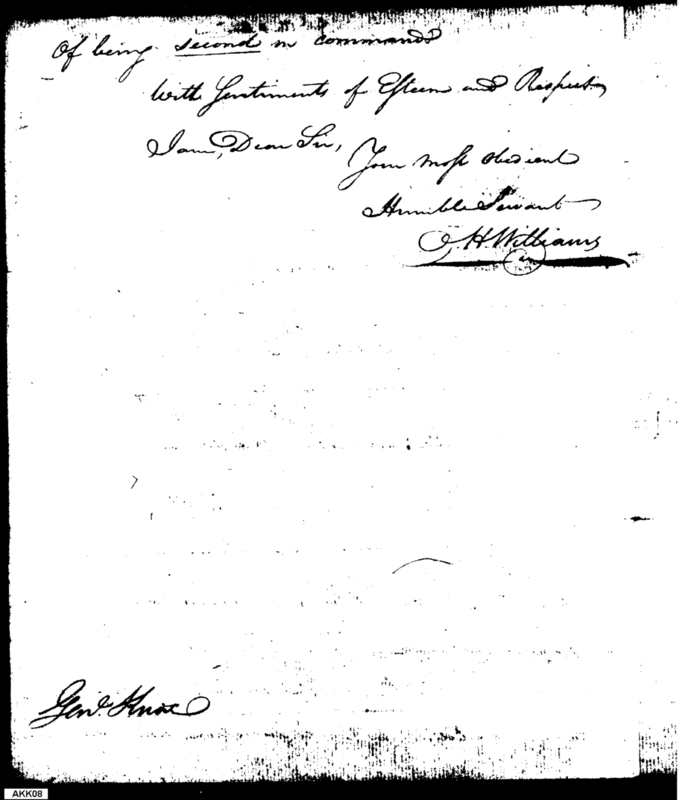 Of being second in command
With Sentiments of Esteem and Respect
I am, Dear Sir,
Your most obedient
Humble Servant
O H Williams
Genl. Knox
AKK08